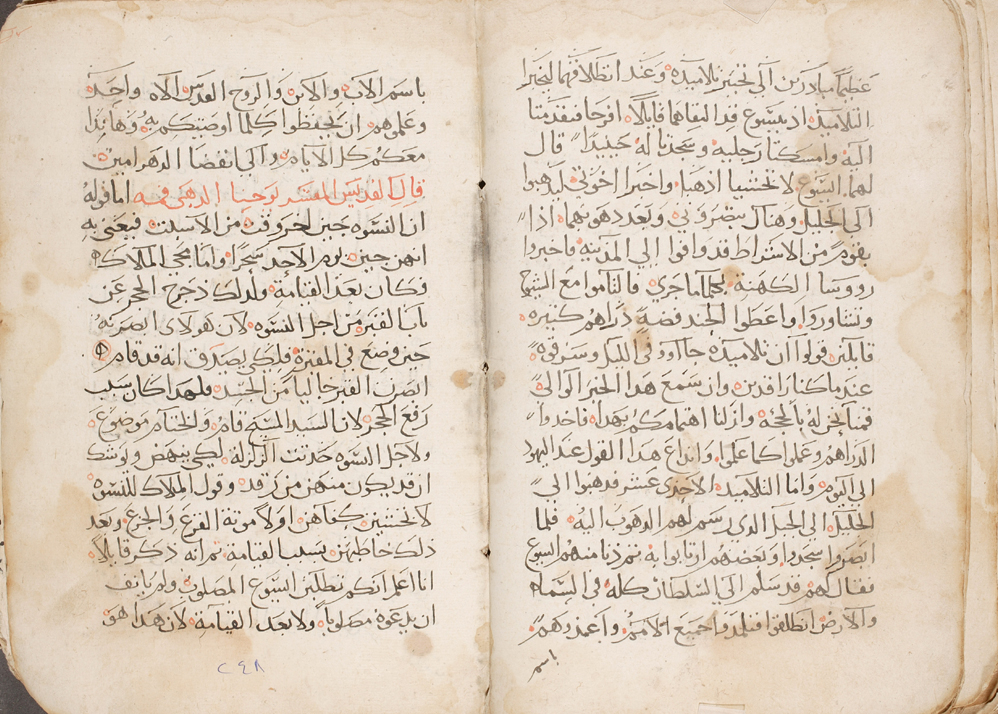 عظيمًا مبادرين الي تخبير تلاميذه وعند انطلاقهما ليخبرا
التلاميذ اذ يسوع قد التقاهما قايلًا افرحا فتقدمتا
اليه وامسكتا رجليه وسجدتا له حينيذًا قال
لهما ايسوع لا تخشيا اذهبا واخبرا اخوتي ليذهبوا
الي الجليل وهناك ينظروني وبعد ذهوبهما اذا
بقوم من الاشراط قد وافوا الي المدينه واخبروا
رووسا الكهنه بكلما جري فالتاموا مع الشيوخ
وتشاوروا واعطوا الجند فضة دراهم كثيره
قايلين قولوا ان تلاميذه جاوو في الليل وسرقوه
عندما كنا راقدين وان سمع هذا الخبر الوالي
فنحن له بالحجه وازلنا اهتمامكم بهذا فاخذوا
الدراهم وعملوا كما علموا وانذاع هذا القول عند اليهود
الي اليوم واما التلاميذ الاحدي عشر فذهبوا الي
الجليل الي الجبل الذي رسم لهم الذهوب اليه فلما
ابصروا سجدوا وبعضهم ارتابوا به ثم دنا منهم ايسوع
فقال لهم قد سلم الي السلطان كله في السماء
والارض انطلقوا فتلمذوا جميع الامم واعمذوهم
باسم
باسم الاب والابن والروح القدس الاله واحد
وعلموهم ان يحفظوا كلما اوصيتكم به وها بذا
معكم كل الايام والي انقضا الدهر امين
قال القديس المفسر يوحنا الذهبي فمه اما قوله
ان النسوه جين لخر وقت من الاسبت فيعني به
انهن جين يوم الاحد سحرًا واما مجي الملاك
فكان بعد القيامة ولذلك دحرج الحجر عن
باب القبر من اجل النسوه لان هولاي ابصرنه
حين وضع في المقبرة فلكي يصدقن انه قد قام
ابصرن القبر خاليا من الجسد فلهذا كان سبب
رفع الحجر لان السيد المسيح قام والختام موضوع
ولاجل النسوه حدثت الزلزلة لكي ينهض ويوشك
ان قد يكون منهن من رقد وقول الملاك للنسوه
لا تخشين كفاهن اولًا مونة الفزع والجزع وبعد
ذلك خاطبهن بسبب القيامة ثم انه ذكر قايلًا
انا اعلم انكم تطلبن ايسوع المصلوب ولم يانف
ان يدعوه مصلوبا ولا بعد القيامة لان هذا هو
٢٤٨